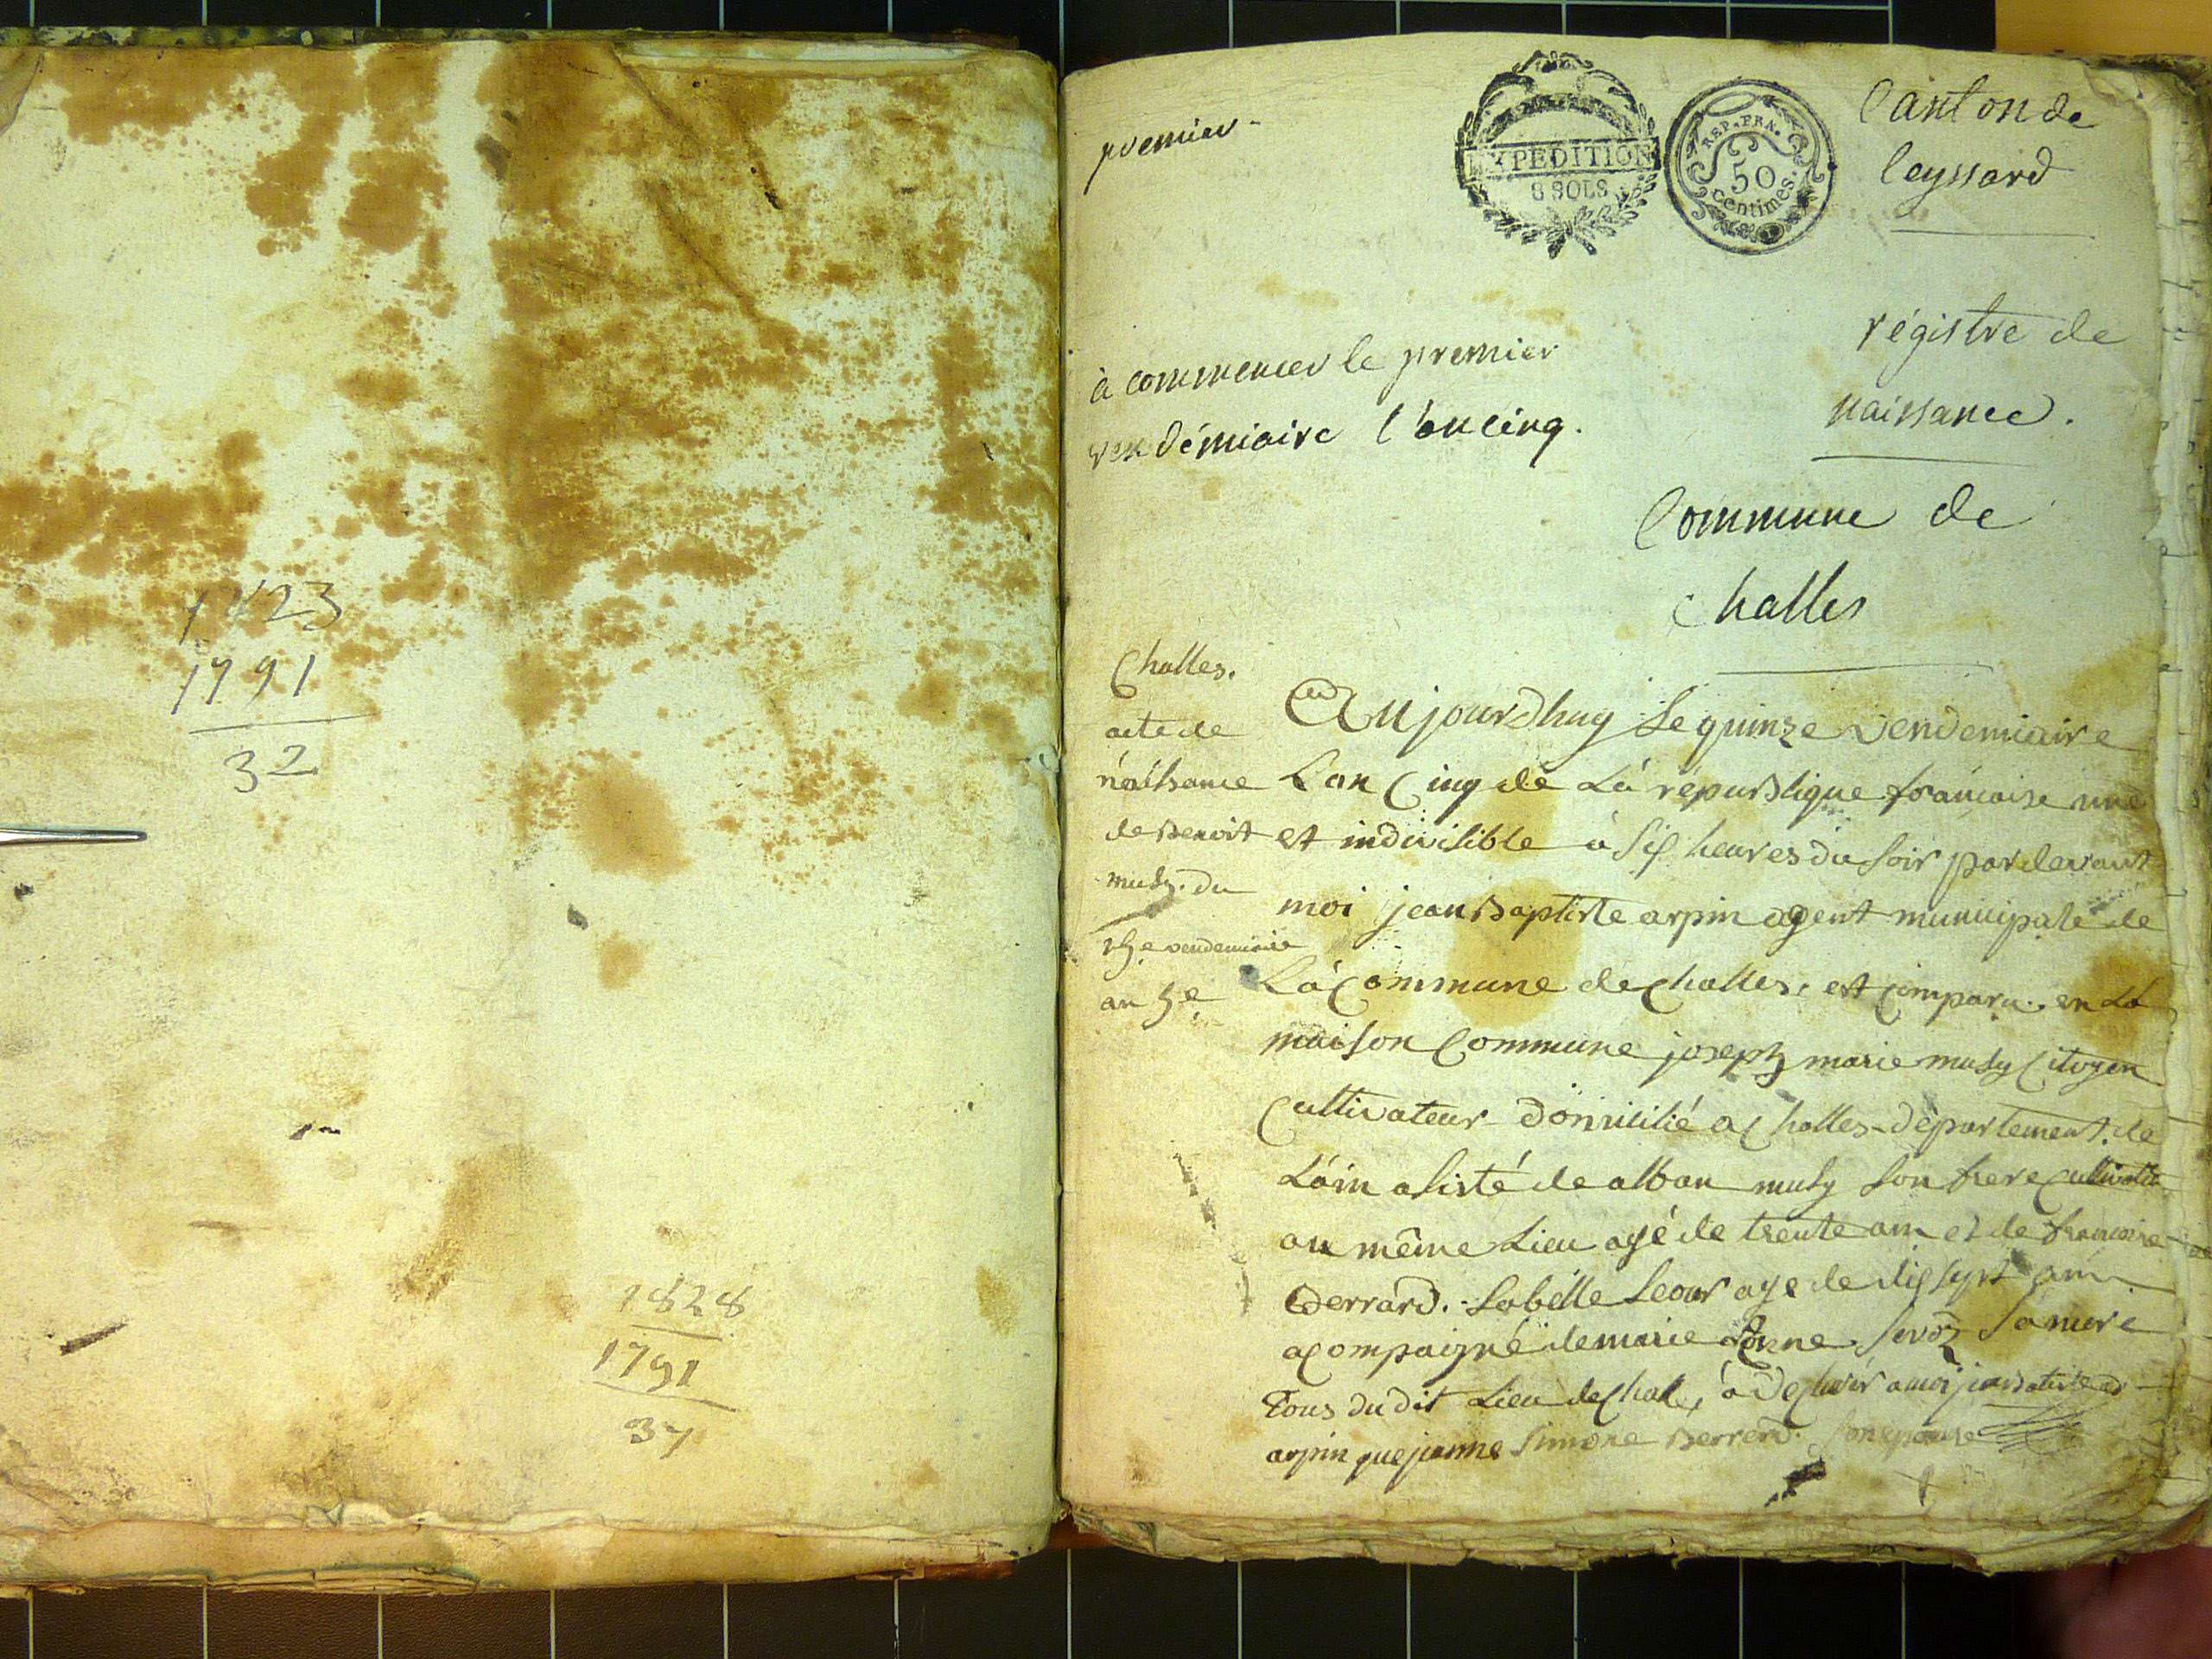 1823
1791
32
1828
1791
37
premier
EXPEDITION
8 SOLS
REP. FRA.
50
centimes.
Canton de
leyssard
régistre de
naissance.
à commencer le premier
vendémiaire l'an cinq.
Commune de
Challes
Challes.
acte de
naissance
de Benoit
musy. du
15e vendemiaire
an 5e
Aujourdhuy le quinze vendemiaire
L'an Cinq de Lá républigue francaise une
et indivisible à six heures du soir pardevant
moi jean Baptiste arpin agent municipale de
Lá Commune de Challes, est comparu en La
maison Commune joseph marie musy Citoyen
Cultivateur domicilié a Challes département de
L'áin asisté de alban musy son frere
au même Lieu agé de trente an et de francoise
Berrard. sa belle seour agé de dix sept ans
acompaigné de marie sa mere
Tous du dit Lieu de Chale, a moi
arpin que jeanne Simone Berrerd. son epouse